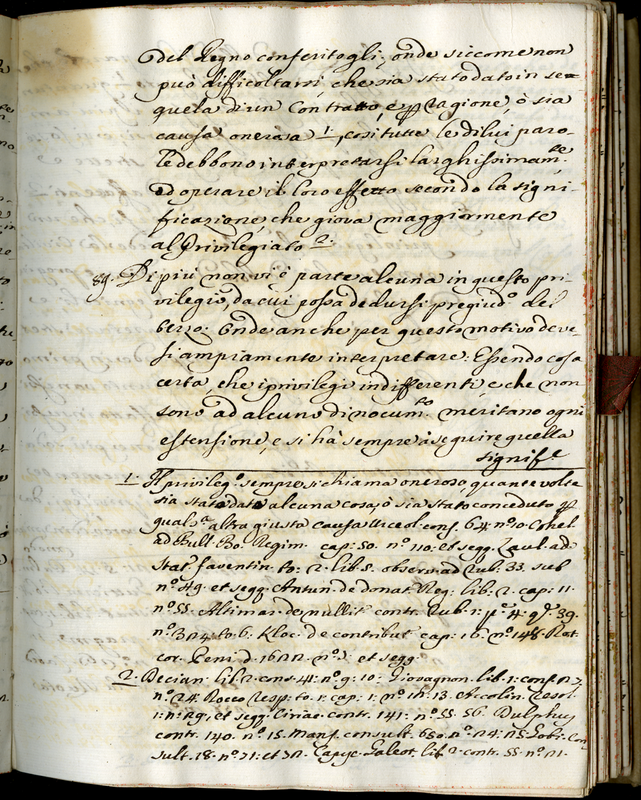 del Regno conferitogli, onde siccome non
può difficoltarsi che sia stato dato in se=
quela di un Contratto, e p ragione, ò sia
causa onerosa 1., così tutte le di lui paro-
le debbono interpretarsi larghissimam.te
ad operare il loro effetto secondo la signi-
ficazione, che giova maggiormente
al Privilegiato 2.
89. Di più non vi è parte alcuna in questo pri-
vilegio, da cui possa dedursi pregiud.o del
terzo: Onde anche per questo motivo deve-
si ampiamente interpretare: Essendo cosa
certa, che i privilegi indifferenti e che non
sono ad alcuno di nocum.to meritano ogni
estensione, e si hà sempre à seguire quella
signifi
1. Il privileg.o sempre si chiama oneroso, quante volte
sia stata data alcuna cosa, ò sia stato conceduto p
qual altra giusta causa cons. 64. n.o 10. Cohel
ad Bull. Bo. Regim. cap: 50. n.o 110. et segg. Zaul. ad
Stat. faventin. to: 2. lib. 5. observ. ad Rub. 33. sub
n.o 49. et segg. Antun. de donat. Reg. lib. 2. cap: 11.
n.o 55. Altimar. de nullit. contr. Rub. 1. p.e 4. q. 39.
n.o 324. to: 6. Kloc. de contribut. cap: 16. n.o 148. Rot.
cor. d. 1622. n.o et segg.
2. Decian. lib. 2. cons. 41. n.o 9. 10. Giovagnon. lib. 1. cons.
n.o 24. Rocco resp. to: 1. cap: 1. n.o 12. 13. resol.
1. n. 29. et segg. Ciriac. contr. 141. n.o 55. 56. Dulphus
contr. 140. n.o 15. Manf. consult. 650. n.o 24. 25. Con
sult. 18. n.o 21. et 32. Capyc. Galeot. lib. 2. contr. 55. n.o 21.